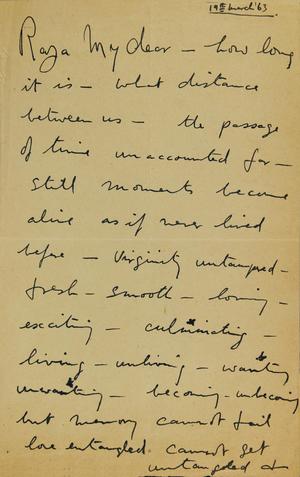 19th March '63.
Raza My dear – how long
it is – what distance
between us – the passage
of time unaccounted for –
still moments become
alive as if never lived
before – Virginity untampered –
fresh – smooth – loving –
exciting – culminating –
living – unliving – wanting
unwanting – becoming – unbecoming
but memory cannot fail
love entangled cannot get
untangled &